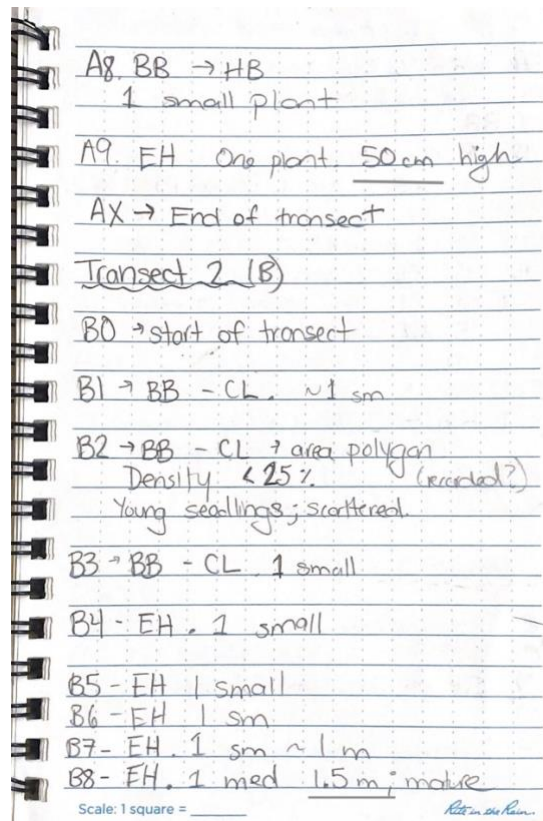 A8. BB → HB
1 small plant
A9. EH One plant. 50 cm high
AX → End of transect
Transect 2 (B)
B0 → start of transect
B1 → BB - CL. ~1 sm
B2 → BB - CL → area polygon
Density <25%. (recorded?)
Young seedlings; scattered.
B3 → BB - CL. 1 small
B4 - EH. 1 small
B5 - EH 1 small
B6 - EH 1 sm
B7 - EH. 1 sm ~ 1 m
B8 - EH. 1 med 1.5 m; mature
Scale: 1 square = ______
Rite in the Rain